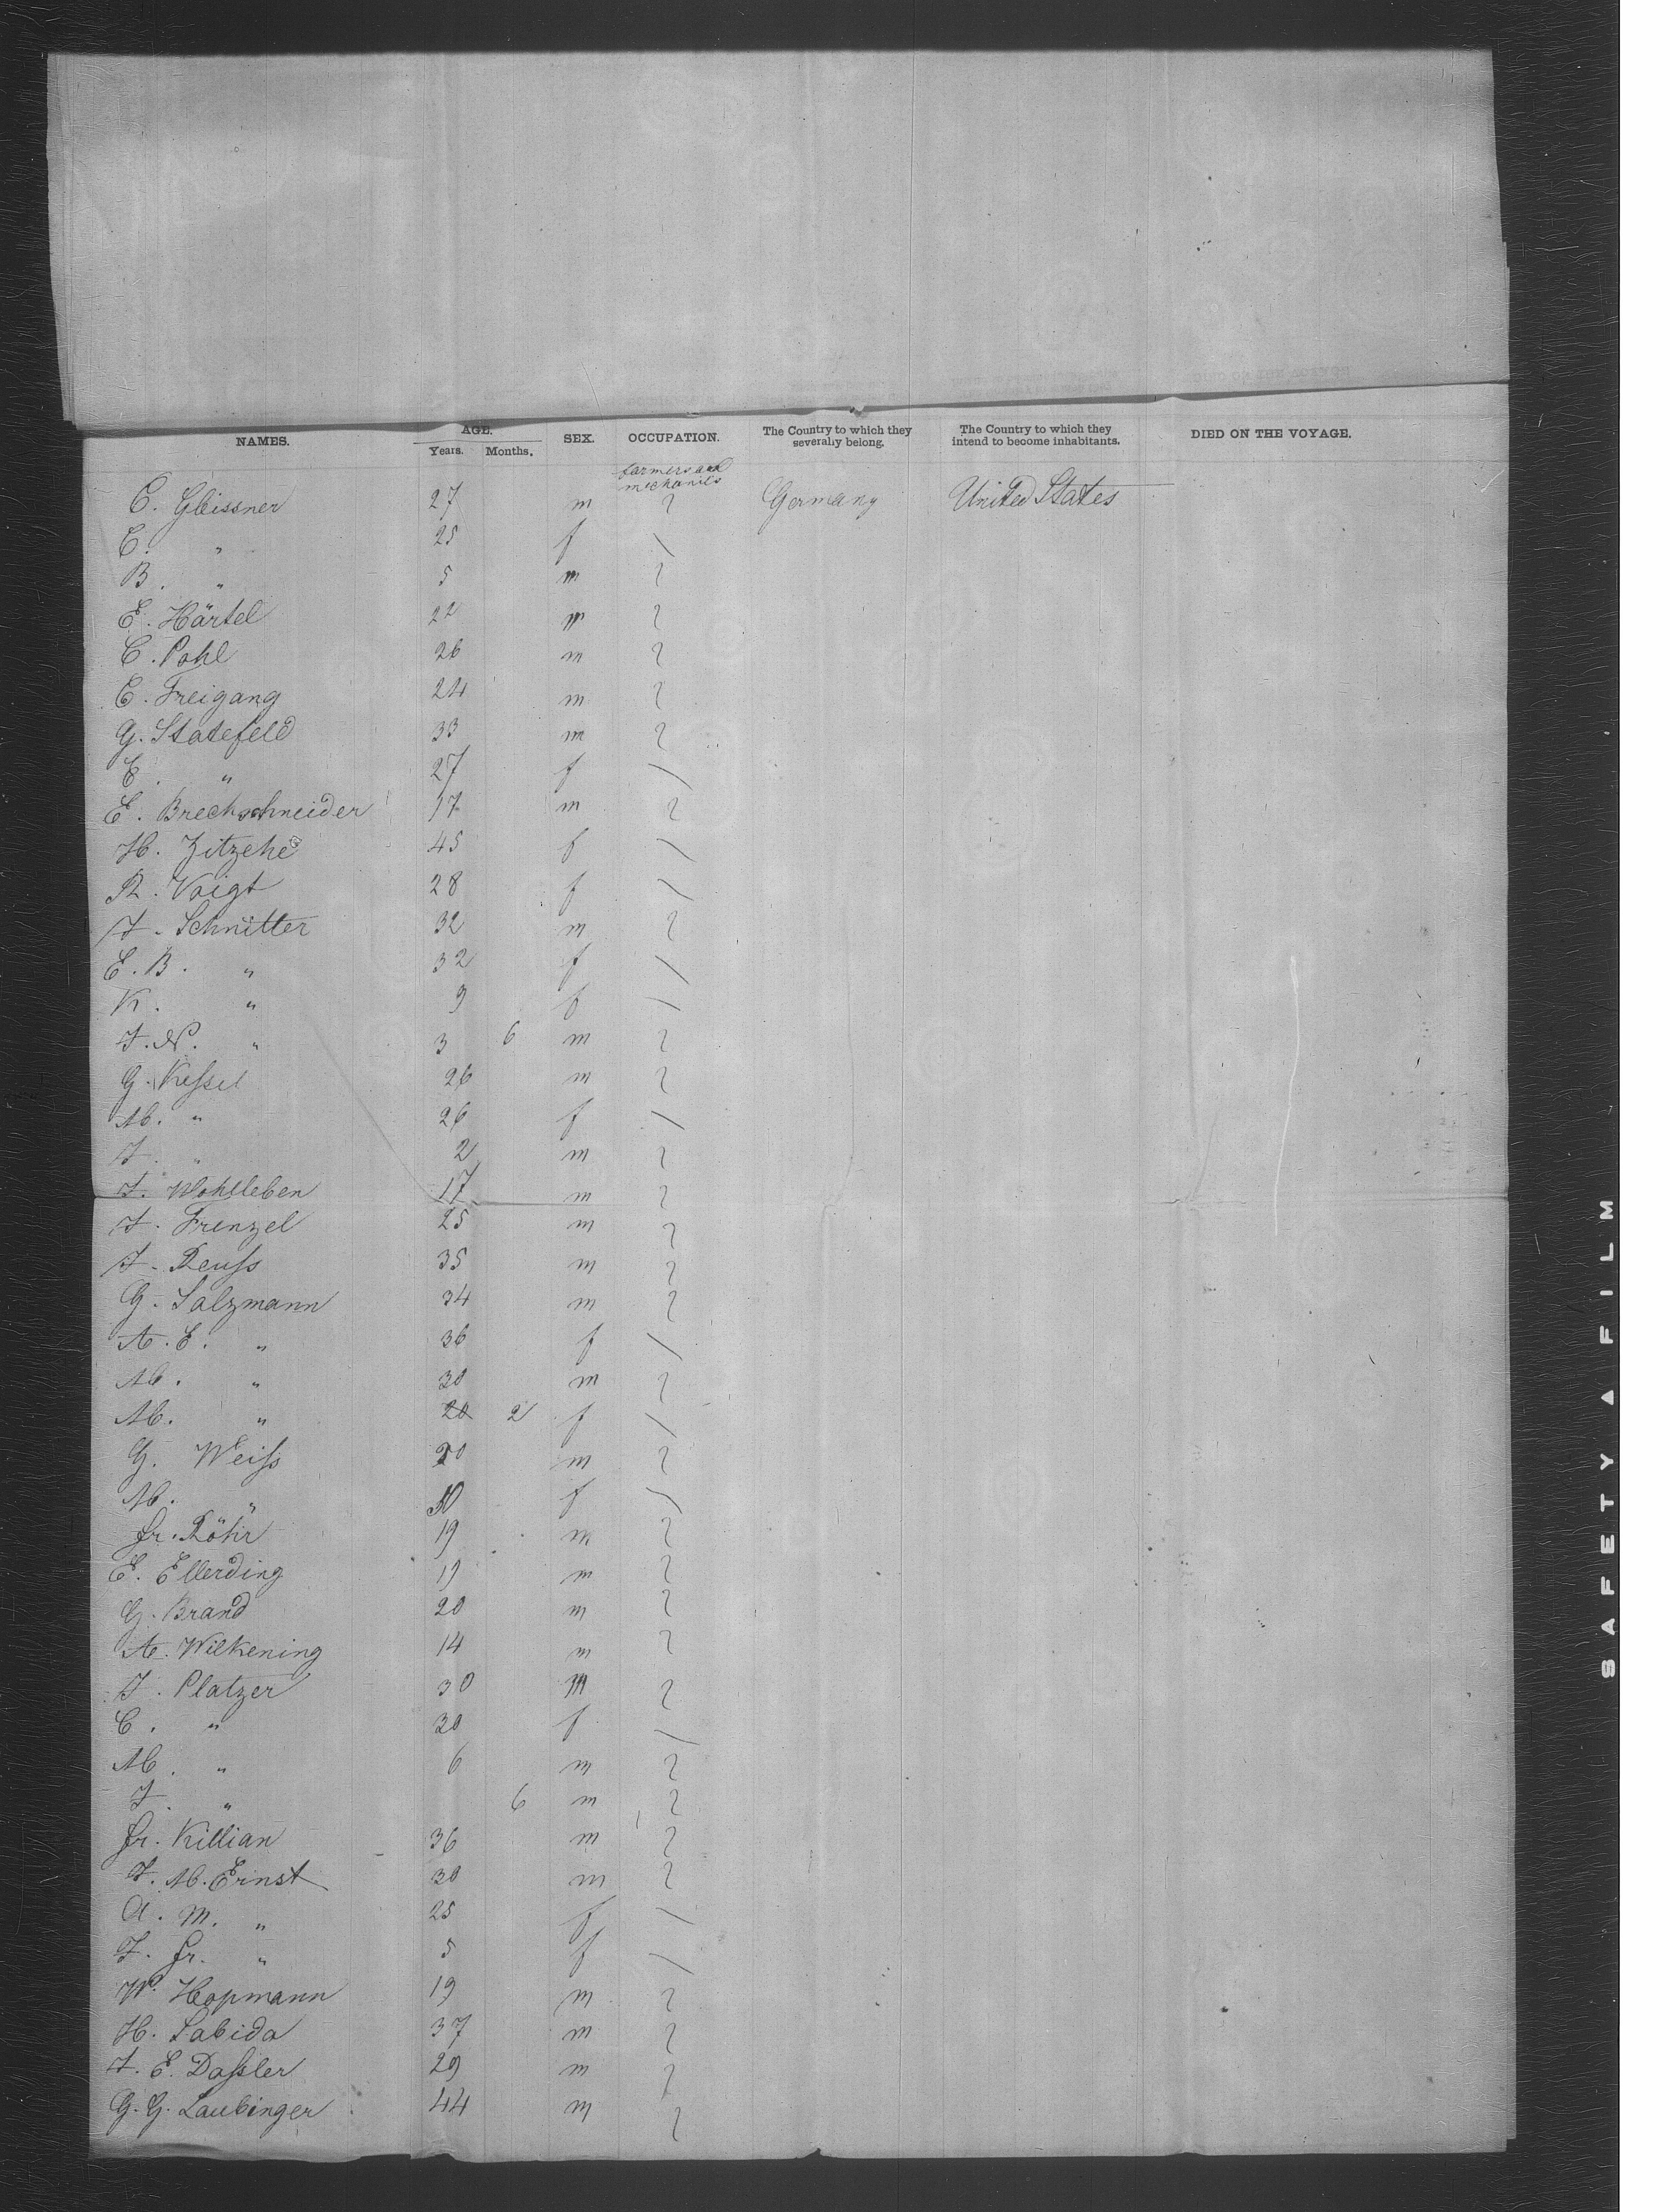 NAMES. AGE. SEX. OCCUPATION. The Country to which they severally belong. The Country to which they intend to become inhabitants. DIED ON THE VOYAGE.
Years. Months.
farmers and
mechanics
C. Gleissner 27 m Germany United States
E. " 25 f
B. " 5 m
E. Härtel 22 m
C. Pohl 26 m
C. Freigang 24 m
G. Statefeld 33 m
E. " 27 f
E. Brechschneider 17 m
H. Zitzehe 45 f
R. Voigt 28 f
J. Schnitter 32 m
E. B. " 32 f
K. " 9 f
J. N. " 3 6 m
G. Keſsel 26 m
M. " 26 f
J. " 2 m
J. Wohlleben 17 m
J. Frenzel 25 m
J. Reuſs 35 m
G. Salzmann 34 m
A. E. " 36 f
M. " 30 m
M. " 2 f
G. Weiſs m
M. " f
Fr. Röhr 19 m
E. Ellerding 19 m
G. Brand 20 m
A. Wilkening 14 m
J. Platzer 30 m
C. " 30 f
M. " 6 m
J. " 6 m
Fr. Killian 36 m
J. M. Ernst 30 m
A. M. " 25 f
J. Fr. " 5 f
W. Hopmann 19 m
H. Labida 37 m
J. E. Daſsler 29 m
G. G. Laubinger 44 m
SAFETY A FILM